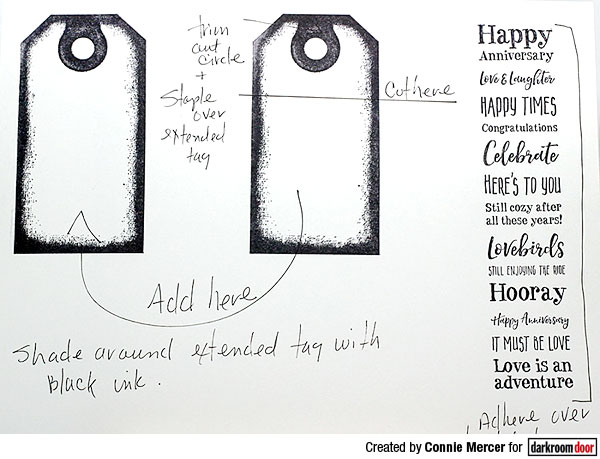 trim
out
circle
+
Staple
over
extended
tag
Cut here
Add here
Shade around extended tag with
Black ink.
Happy
Anniversary
Love & Laughter
HAPPY TIMES
Congratulations
Celebrate
HERE'S TO YOU
Still cozy after
all these years!
Lovebirds
STILL ENJOYING THE RIDE
Hooray
Happy Anniversary
IT MUST BE LOVE
Love is an
adventure
Adhere over
Created by Connie Mercer for darkroomdoor